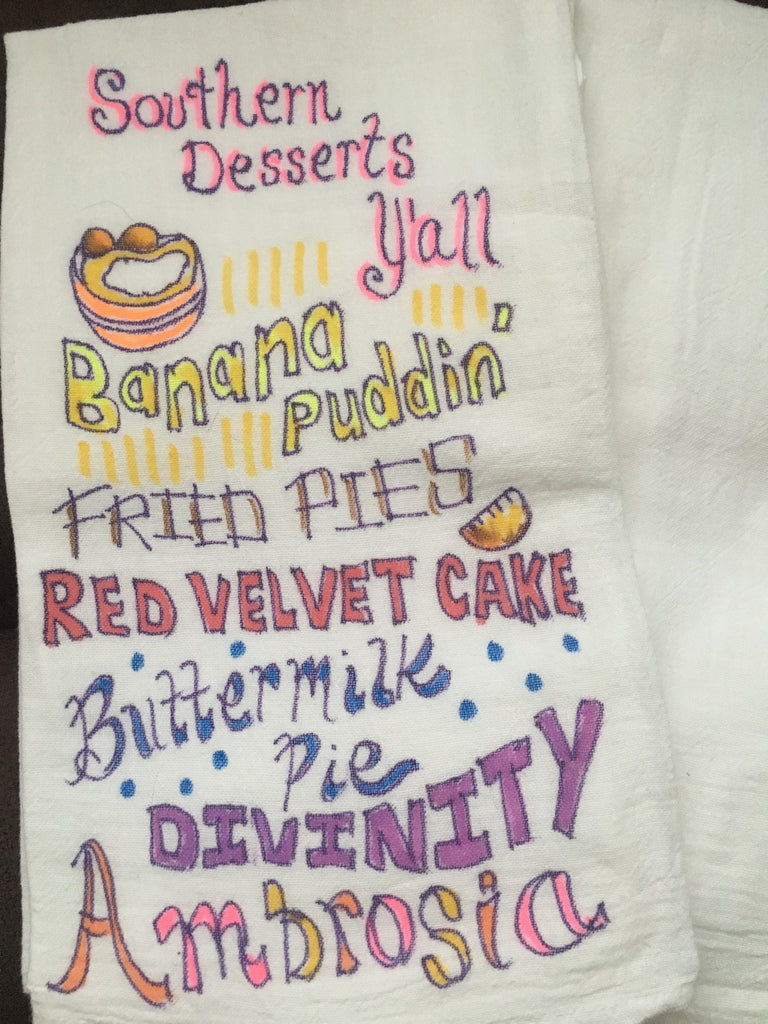 Southern
Desserts
Y'all
Banana
Puddin'
FRIED PIES
RED VELVET CAKE
Buttermilk
Pie
DIVINITY
Ambrosia